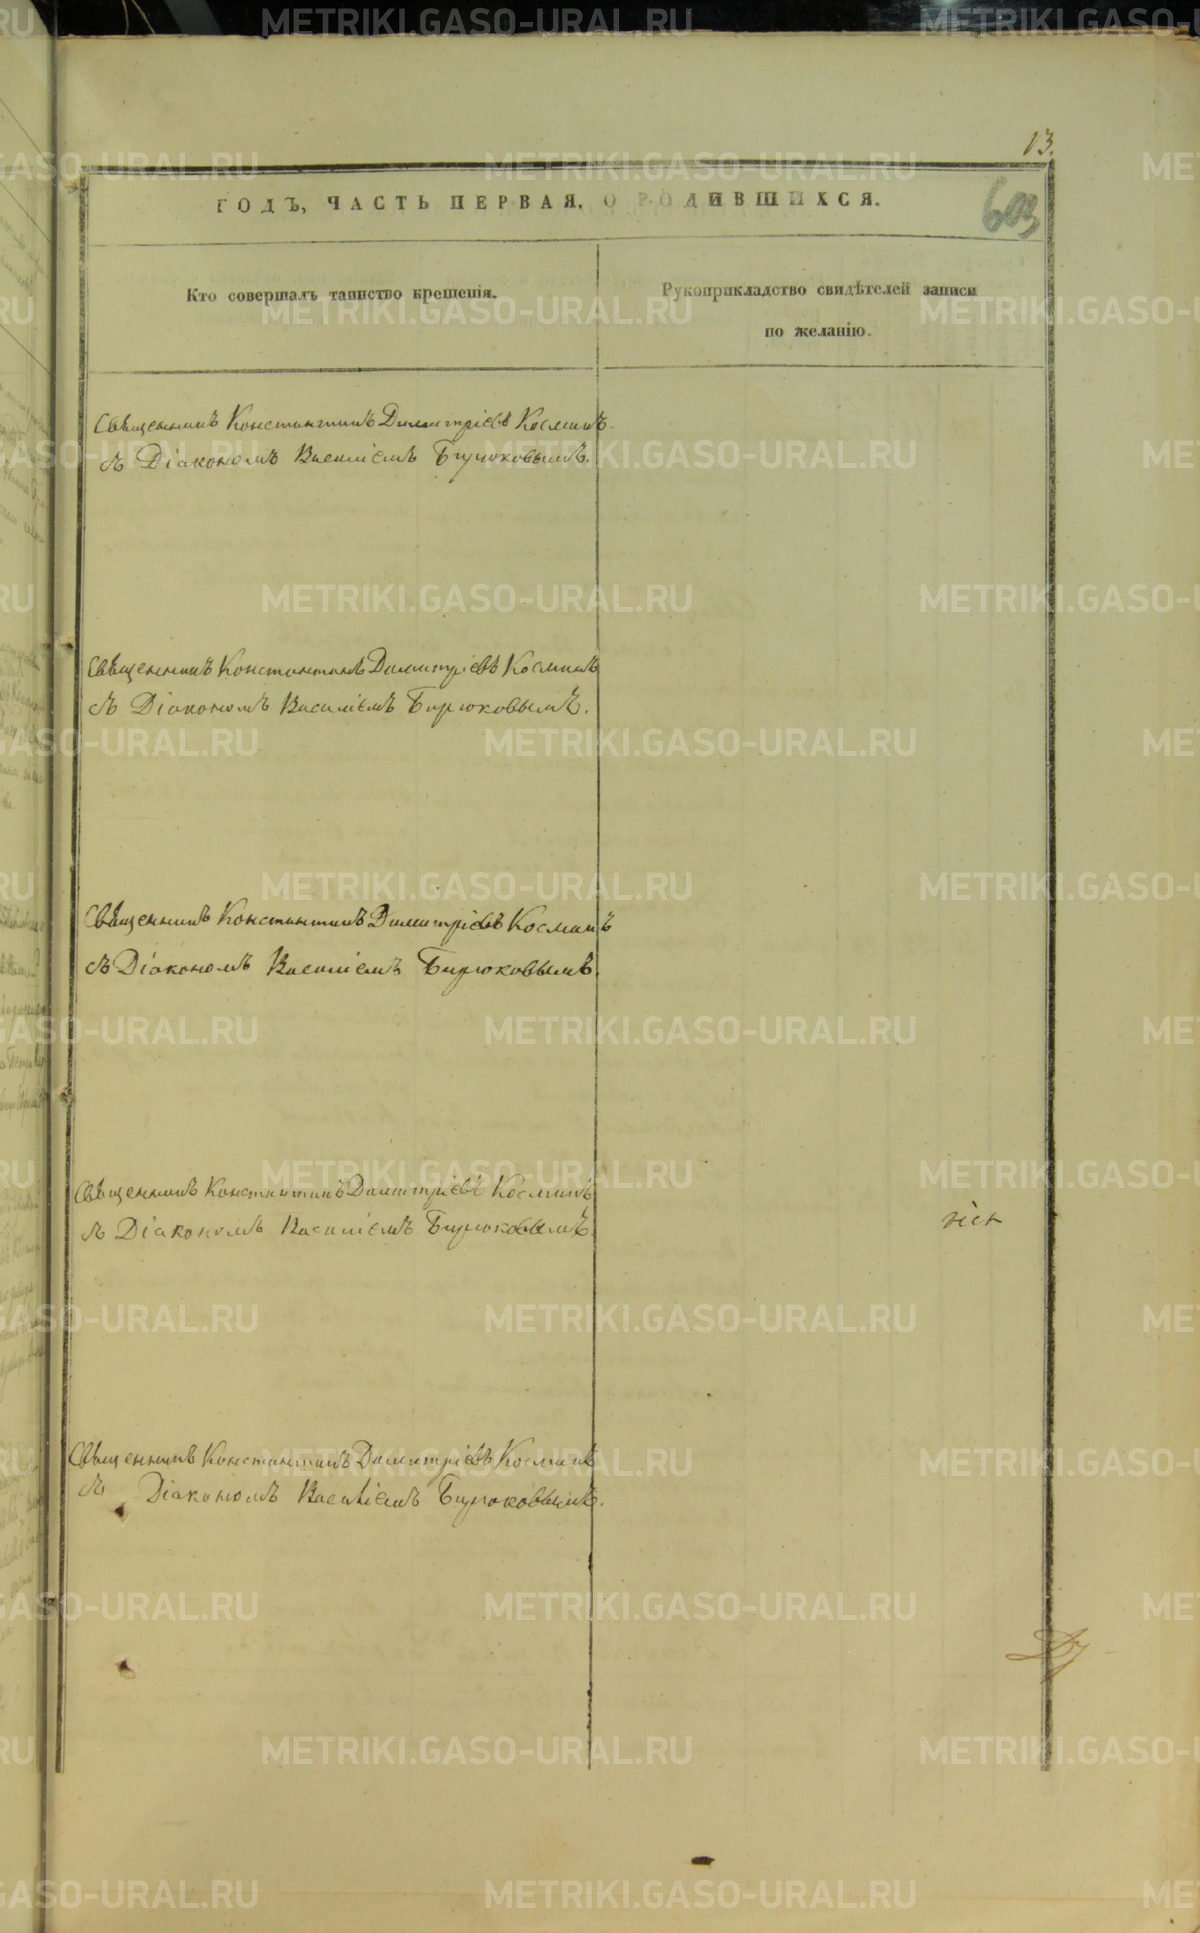 13.
ГОДЪ, ЧАСТЬ ПЕРВАЯ, О РОДИВШИХСЯ.
603
Кто совершалъ таинство крещенія.
Рукоприкладство свидѣтелей записи
по желанію.
Священникъ Константинъ Димитріевъ Косминъ
съ Діакономъ Василіемъ Бирюковымъ.
Священникъ Константинъ Димитріевъ Косминъ
съ Діакономъ Василіемъ Бирюковымъ.
Священникъ Константинъ Димитріевъ Косминъ
съ Діакономъ Василіемъ Бирюковымъ.
Священникъ Константинъ Димитріевъ Косминъ
съ Діакономъ Василіемъ Бирюковымъ.
Священникъ Константинъ Димитріевъ Косминъ
съ Діакономъ Василіемъ Бирюковымъ.
METRIKI.GASO-URAL.RU